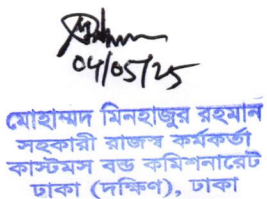 04/05/25
মোহাম্মদ মিনহাজুর রহমান
সহকারী রাজস্ব কর্মকর্তা
কাস্টমস বন্ড কমিশনারেট
ঢাকা (দক্ষিণ), ঢাকা